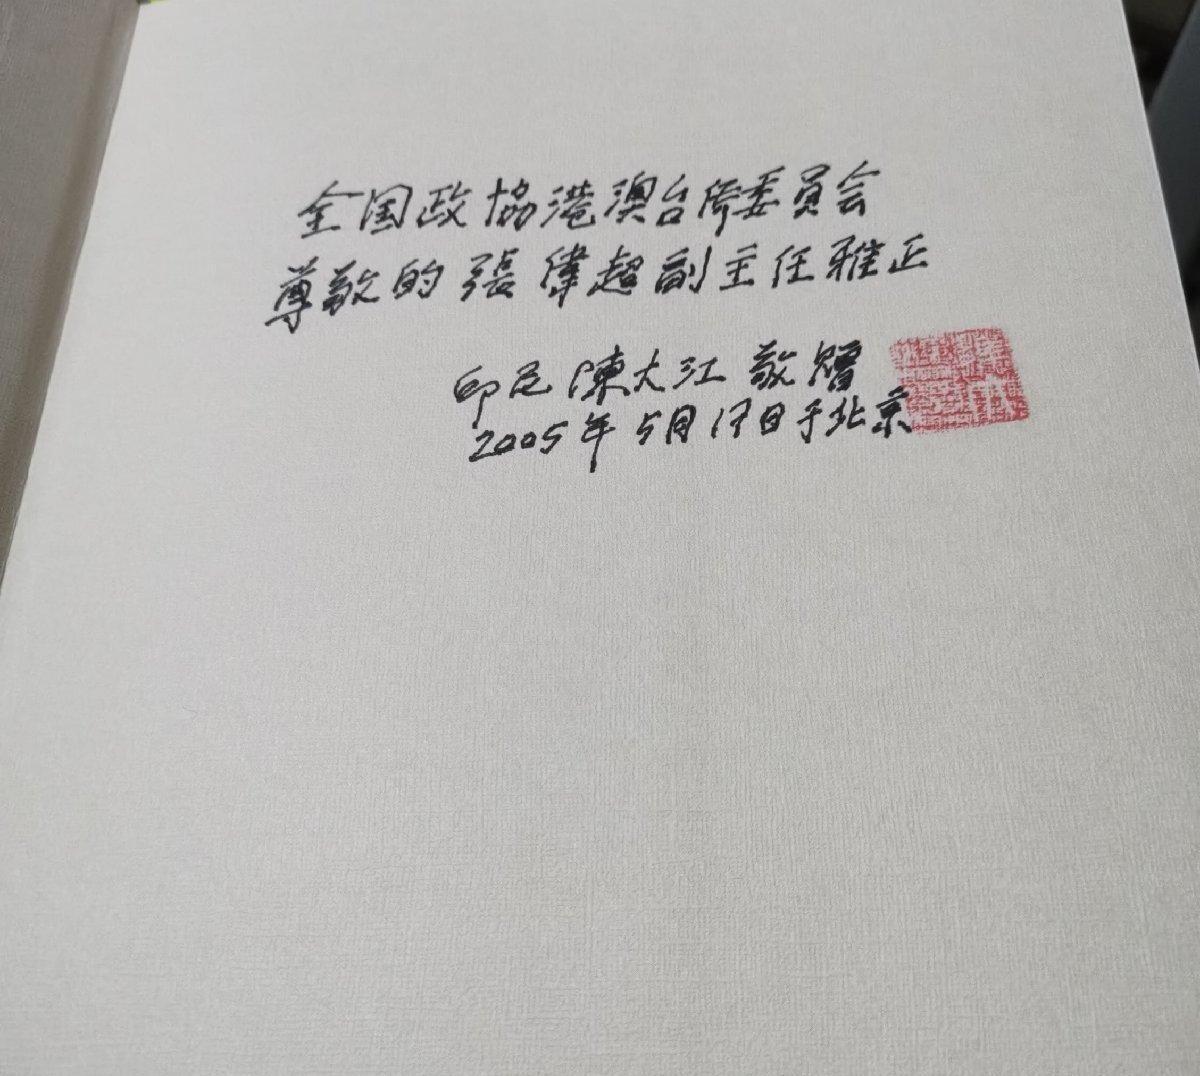 全国政協港澳台侨委員会
尊敬的張偉超副主任雅正
印尼陳大江敬贈
2005年5月17日于北京